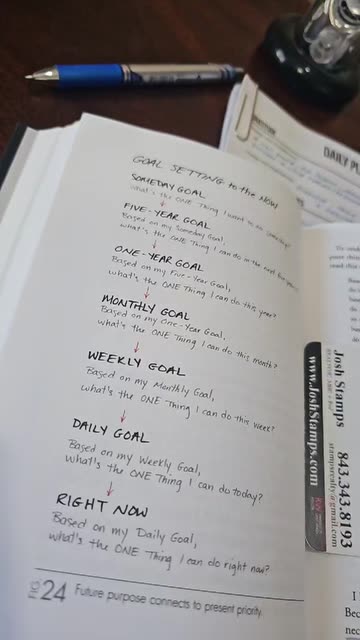 GOAL SETTING to the NOW
SOMEDAY GOAL
What's the ONE Thing I want to do someday?
FIVE-YEAR GOAL
Based on my Someday Goal,
what's the ONE Thing I can do in the next five years?
ONE-YEAR GOAL
Based on my Five-Year Goal,
what's the ONE Thing I can do this year?
MONTHLY GOAL
Based on my One-Year Goal,
what's the ONE Thing I can do this month?
WEEKLY GOAL
Based on my Monthly Goal,
what's the ONE Thing I can do this week?
DAILY GOAL
Based on my Weekly Goal,
what's the ONE Thing I can do today?
RIGHT NOW
Based on my Daily Goal,
what's the ONE Thing I can do right now?
FIG 24 Future purpose connects to present priority.
DAILY
Josh Stamps
843.343.8193
www.JoshStamps.com